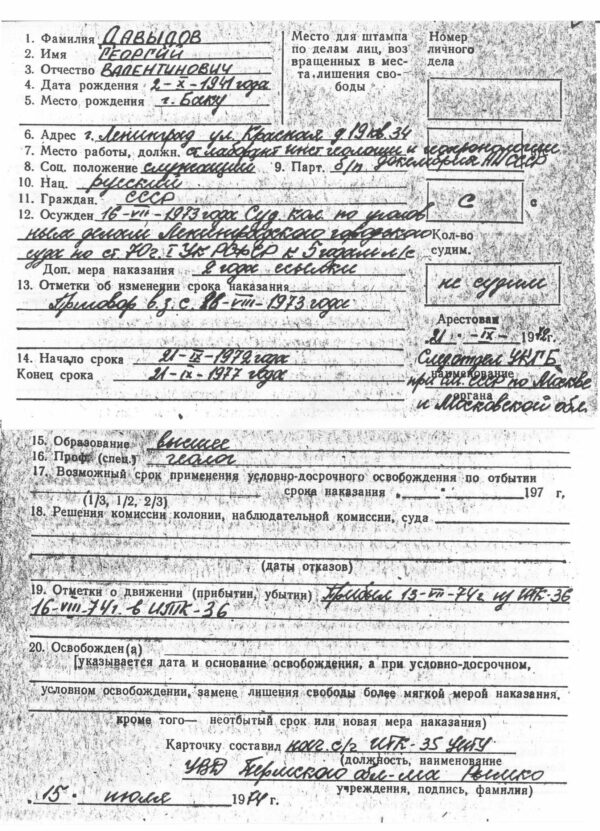 1. Фамилия ДАВЫДОВ
2. Имя ГЕОРГИЙ
3. Отчество ВАЛЕНТИНОВИЧ
4. Дата рождения 2-X-1941 года
5. Место рождения г. Баку
Место для штампа
по делам лиц, воз
вращенных в мес-
та лишения сво-
боды
Номер
личного
дела
6. Адрес г. Ленинград ул. Красная д 19 кв. 34
7. Место работы, должн. ст лаборант инст геологии и геохронологии
докембрия АН СССР
8. Соц. положение служащий 9. Парт. б/п
10. Нац. русский
11. Граждан. СССР
С
с
12. Осужден 16-VII-1973 года Суд. кол. по уголов
ным делам Ленинградского городского
суда по ст. 70 ч. I УК РСФСР к 5 годам л/с
Доп. мера наказания 2 года ссылки
Кол-во
судим.
не судим
13. Отметки об изменении срока наказания
Приговор в з. с. -VIII-1973 года
Арестован
21 · -IX- 1972г.
Следотдел УКГБ
наименование
при СССР по Москве
органа
и Московской обл.
14. Начало срока 21-IX-1972 года
Конец срока 21-IX-1977 года
15. Образование высшее
16. Проф. (спец.) геолог
17. Возможный срок применения условно-досрочного освобождения по отбытии
срока наказания „ 197 г,
(1/3, 1/2, 2/3)
18. Решения комиссии колонии, наблюдательной комиссии, суда
(даты отказов)
19. Отметки о движении (прибытии, убытии) Прибыл 13-VII-74 г. из ИТК-36
16-VIII-74г. в ИТК-36
20. Освобожден(а)
[указывается дата и основание освобождения, а при условно-досрочном,
условном освобождении, замене лишения свободы более мягкой мерой наказания,
кроме того— неотбытый срок или новая мера наказания)
Карточку составил нач. с/г ИТК-35 УИТУ
(должность, наименование
УВД Пермского обл-ма
учреждения, подпись, фамилия)
„ 15 " июля 1974 г.